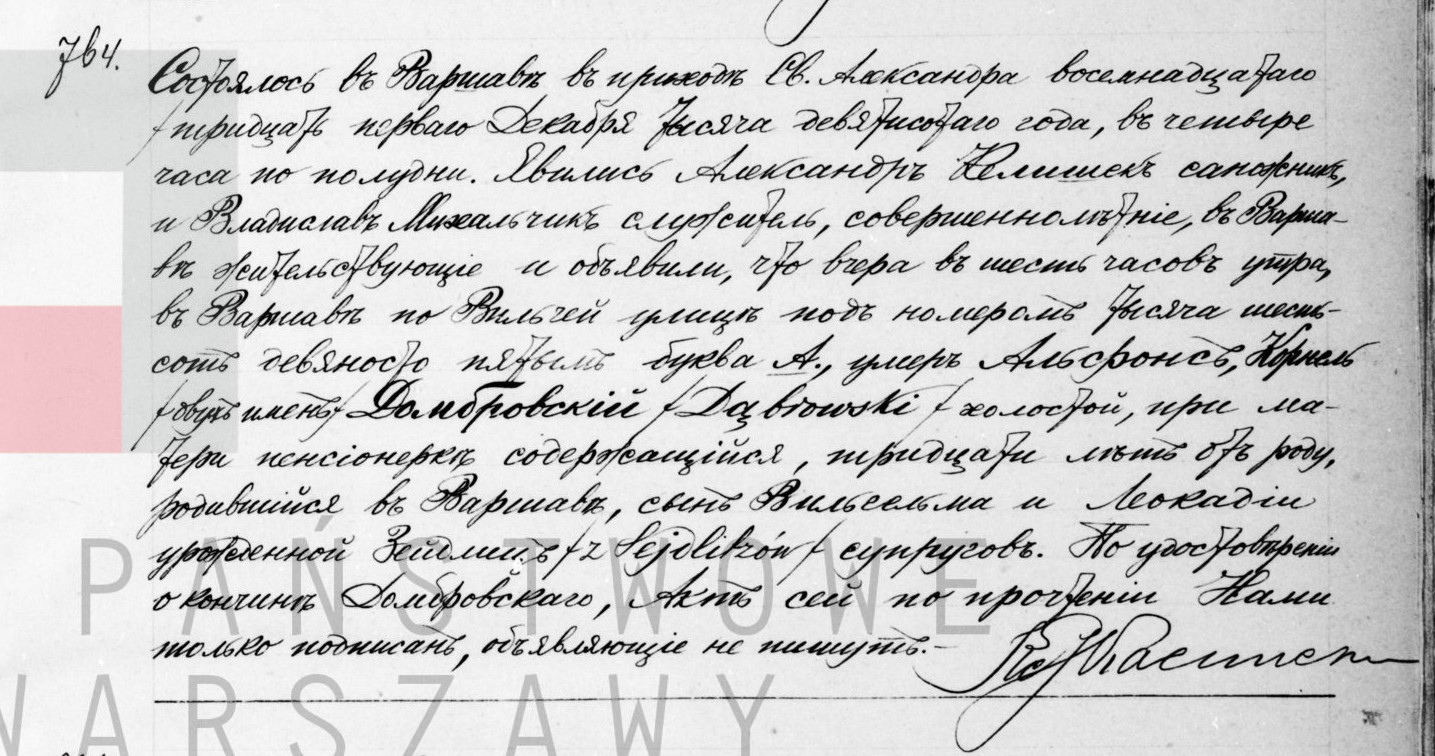 764.
Состоялось въ Варшавѣ въ приходѣ Св. Александра восемнадцатаго
/тридцать перваго Декабря тысяча девятисотаго года, въ четыре
часа по полудни. Явились Александръ Келишекъ сапожникъ,
и Владиславъ Михальчикъ служитель, совершеннолѣтніе, въ Варша-
вѣ жительствующіе и объявили, что вчера въ шесть часовъ утра,
въ Варшавѣ по Вильчей улицѣ подъ номеромъ тысяча шесть-
сотъ девяносто пятымъ буква А., умеръ Альфонсъ, Корнель
/двухъ именъ/ Домбровскій /Dąbrowski/ холостой, при ма-
тери пенсіонеркѣ содержащійся, тридцати лѣтъ отъ роду,
родившійся въ Варшавѣ, сынъ Вильгельма и Леокадіи
урожденной Зейдлицъ /z Sejdlitzów/ супруговъ. По удостовѣреніи
о кончинѣ Домбровскаго, Актъ сей по прочтеніи Нами
только подписанъ, объявляющіе не пишутъ.-
PAŃSTWOWE
WARSZAWY